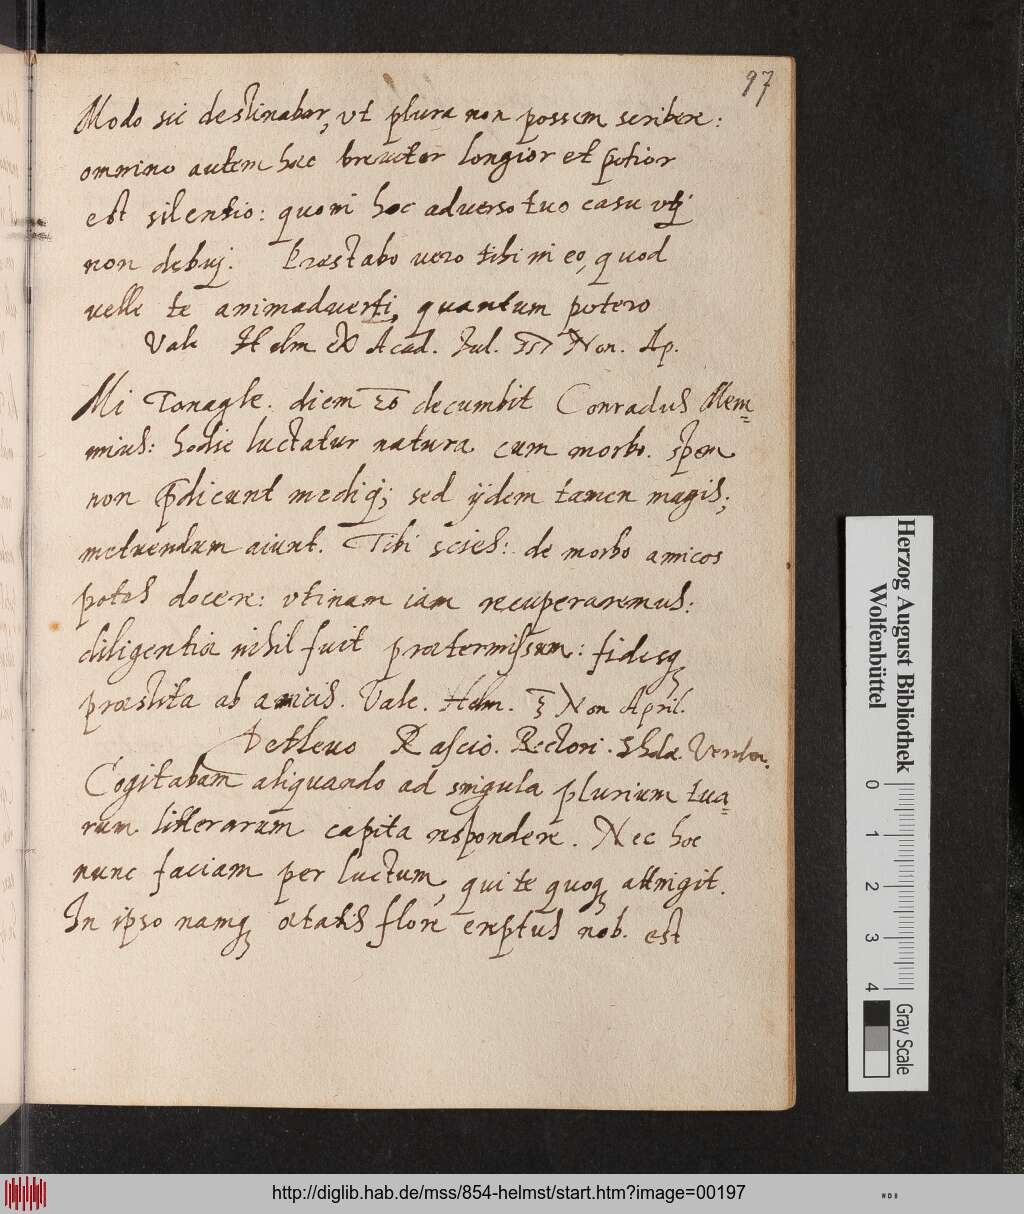 97
Modo sic destinabar, vt plura non possem scribere:
omnino autem haec breviter longior et potior
est silentio: quom hoc adverso tuo casu vtj
non debuj. Praestabo vero tibi in eo, quod
velle te animadverti, quantum potero
Vale Helm ex Acad. Jul. Non. Ap.
Mi Tonagle. diem decumbit Conradus Mem=
mius: hodie luctatur natura cum morbo. spem
non p̄dicunt medicj; sed ijdem tamen magis;
metuendum aiunt. Tibi scies: de morbo amicos
potes docere: vtinam iam recuperaremus:
diligentia nihil fuit praetermissum: fidesq
praestita ab amicis. Vale. Helm. Non April.
Detlevo Rascio. Rectori. Verden.
Cogitabam aliquando ad singula plurium tua=
rum litterarum capita respondere. Nec hoc
nunc faciam per luctum, qui te quoq attingit.
In ipso namq aetatis flore ereptus nob. est
Herzog August Bibliothek
Wolfenbüttel
0 1 2 3 4
Gray Scale
http://diglib.hab.de/mss/854-helmst/start.htm?image=00197